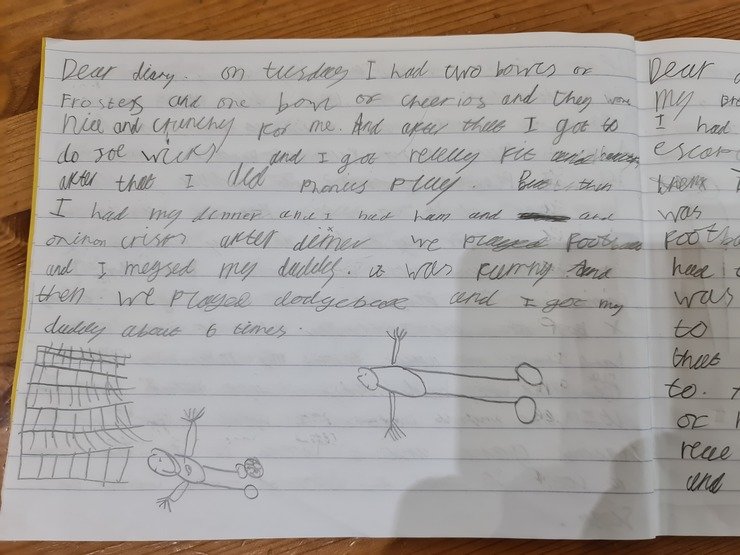 Dear diary. on tuesday I had two bowls of
Frostes and one bowl of cheerios and they were
nice and crunchy for me. And after that I got to
do joe wicks and I got relelly fit and
after that I did Phonics Play. But then
I had my dinner and I had ham and and
oninon crisps after dinner we played football
and I megsed my daddy. it was funny And
then we Played dodgeball and I got my
daddy about 6 times.
Dear
my
I had
escap
then
was
footba
had
was
to
that
to.
of
and